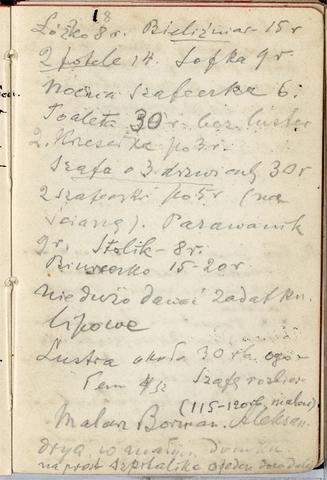 18
Łóżko 8 r. Bieliźniar. 15 r
2 fotele 14. Sofka 9 r.
Nocna szafeczka 6.
Toaleta 30 r. bez luster
2. Krzesełka po 3 r.
Szafa o 3. drzwiach 30 r
2 szafeczki po 5 r (na
ścianę). Parawanik
9 r. Stolik - 8 r.
Biureczko 15-20 r.
nie dużo dawać zadatku.
lipowe
Lustra około 30 rb. ogó-
łem Szafę rozbier.
(115-120 rb. )
Malarz Borman. Aleksan-
drya w małym domku
na prost szpitalika